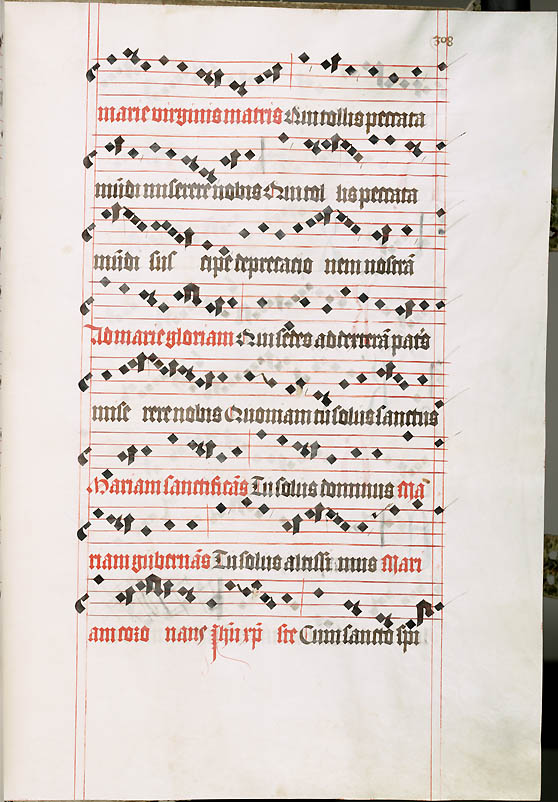 308
marie virginis matris Qui tollis peccata
mūdi miserere nobis Qui tol lis peccata
mūdi sus cipe deprecatio nem nostrā
Ad marie gloriam Qui sedes ad dexterā patris
mise rere nobis Quoniam tu solus sanctus
Mariam sanctificās Tu solus dominus Ma
riam gubernās Tu solus altissi mus Mari
am coro nans Jhū xp̄ ste Cum sancto spi